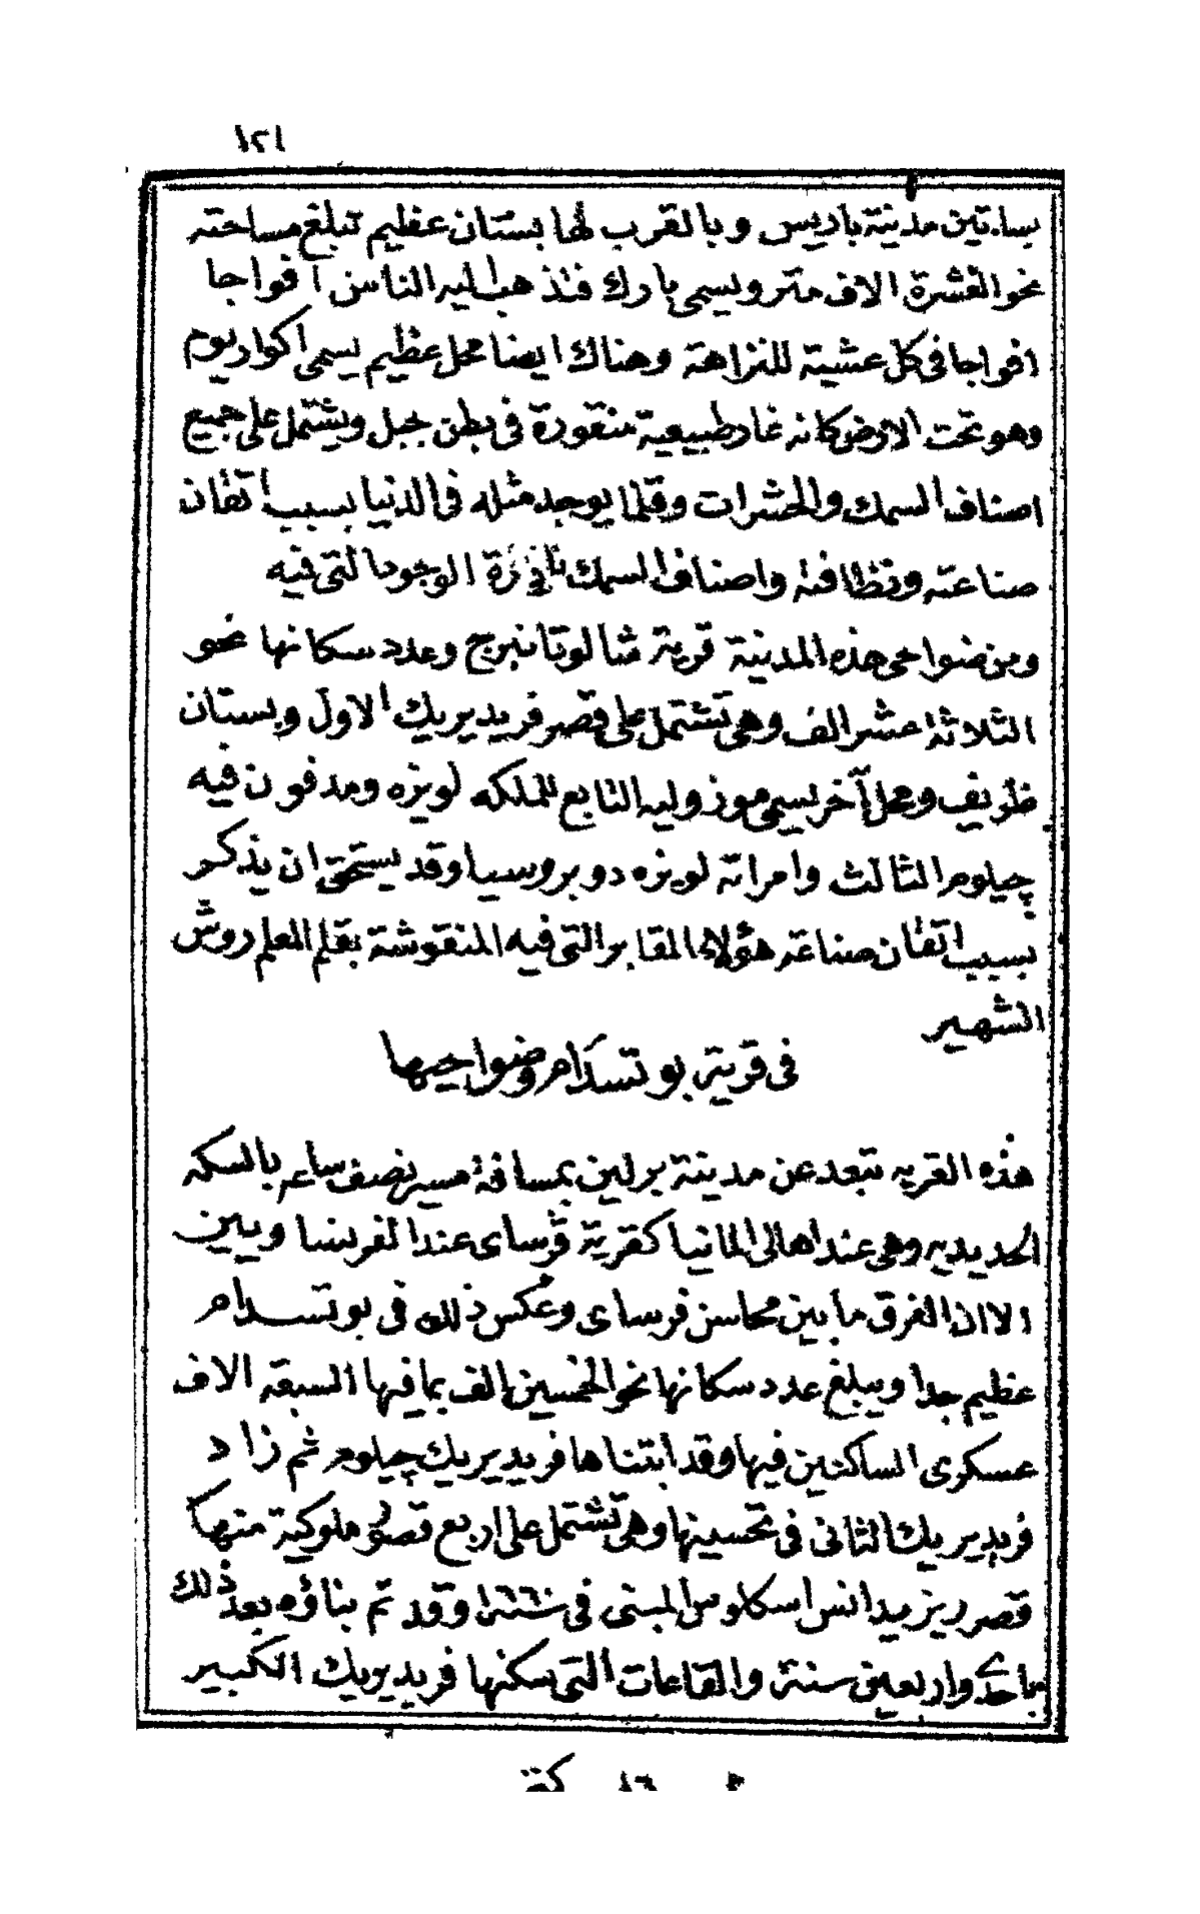 ١٢١
بساتين مدينة باريس وبالقرب لها بستان عظيم تبلغ مساحته
نحو العشرة الاف متر ويسمى بارك فتذهب اليه الناس افواجا
افواجا فى كل عشية للنزاهة وهناك ايضا محل عظيم يسمى اكواريوم
وهو تحت الارض كانه غار طبيعية منقورة فى بطن جبل ويشتمل على جميع
اصناف السمك والحشرات وقلما يوجد مثله فى الدنيا بسبب اتقان
صناعته ونظافته واصناف السمك نادرة الوجود التى فيه
ومن ضواحى هذه المدينة قرية شالوتانبرج وعدد سكانها نحو
الثلاثة عشر الف وهى تشتمل على قصر فريديريك الاول وبستان
ظريف ومحل آخر يسمى موزوليه التابع للملكه لويزه ومدفون فيه
چيلوم الثالث وامراته لويزه دو بروسيا وقد يستحق ان يذكر
بسبب اتقان صناعة هؤلاء المقابر التى فيه المنقوشة بقلم المعلم روش
الشهير
فى قرية بوتسدام وضواحيها
هذه القريه تبعد عن مدينة برلين بمسافة مسير نصف ساعه بالسكه
الحديديه وهى عند اهالى المانيا كقرية ڤرساى عند الفرنسا وبين
الا ان الفرق ما بين محاسن فرساى وعكس ذلك فى بوتسدام
عظيم جدا ويبلغ عدد سكانها نحو الخمسين الف بما فيها السبعة الاف
عسكرى الساكنين فيها وقد ابتناها فريديريك چيلوم ثم زاد
فريديريك الثانى فى تحسينها وهى تشتمل على اربع قصور ملوكية منها
قصر ريزيدانس اسكلوس المبنى فى سنة ١٦٦٠ وقد تم بناؤه بعد ذلك
باحد واربعين سنة والقاعات التى سكنها فريديريك الكبير
١٦ كة